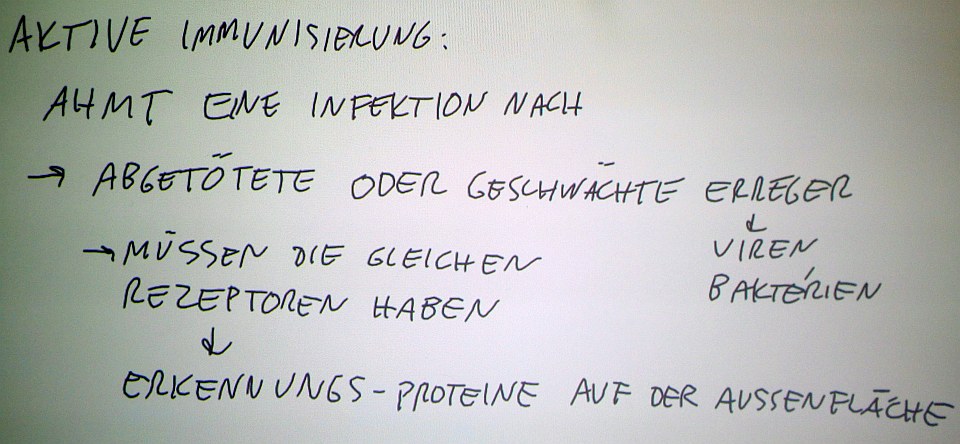 AKTIVE IMMUNISIERUNG:
AHMT EINE INFEKTION NACH
→ ABGETÖTETE ODER GESCHWÄCHTE ERREGER
↓
VIREN
BAKTERIEN
→ MÜSSEN DIE GLEICHEN
REZEPTOREN HABEN
↓
ERKENNUNGS-PROTEINE AUF DER AUSSENFLÄCHE